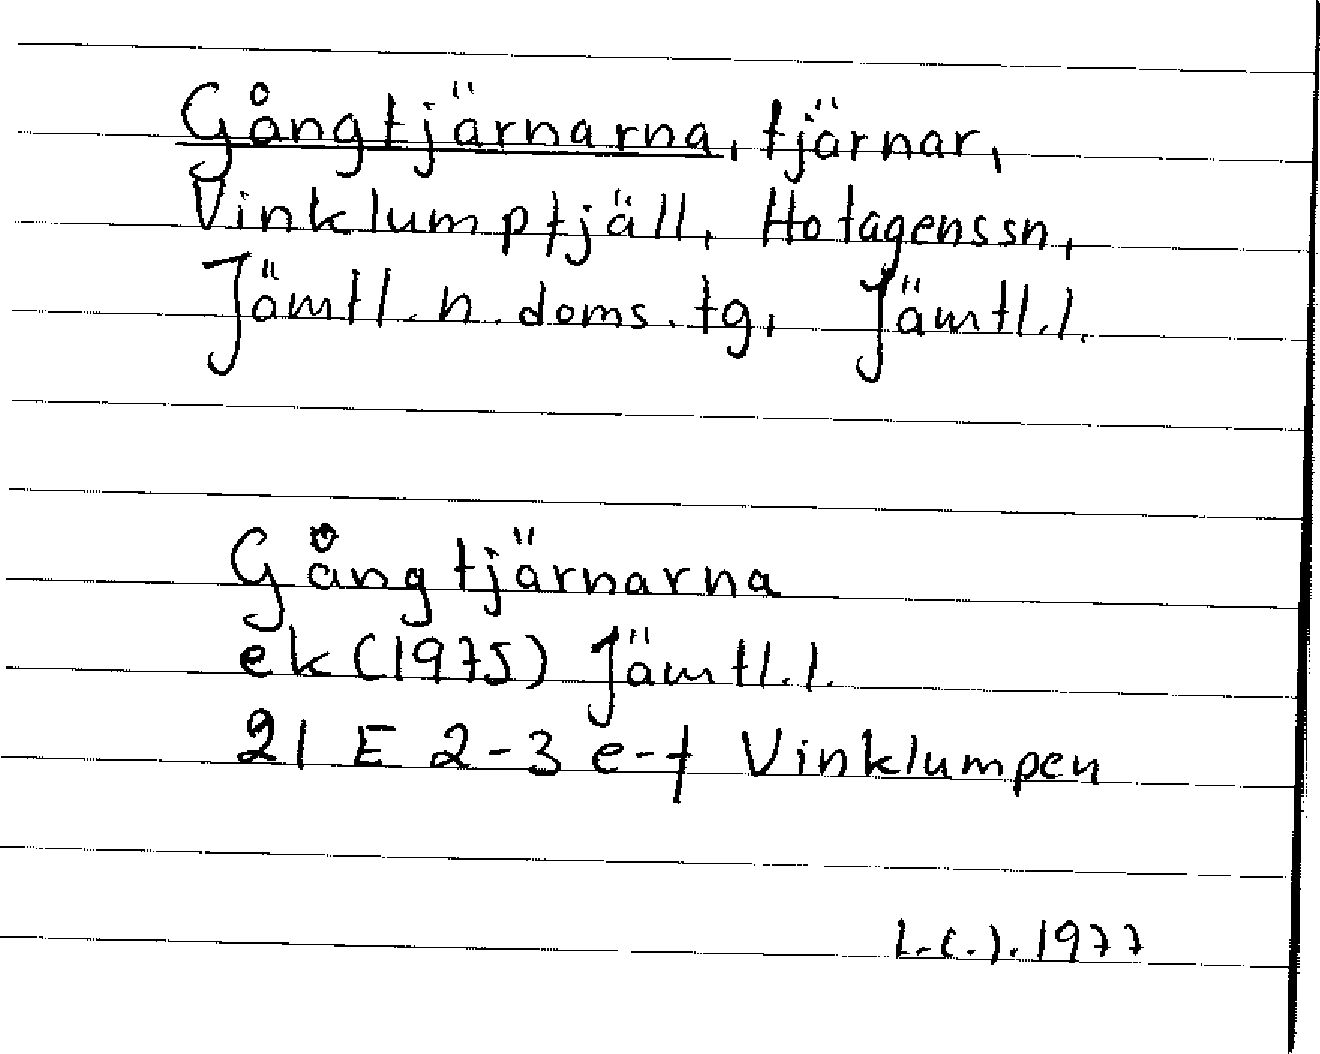 Gångtjärnarna, tjärnar,
Vinklumpfjäll, Hotagens sn,
Jämtl. n. doms. tg, Jämtl. l.
Gångtjärnarna
ek (1975) Jämtl. l.
21 E 2-3 e-f Vinklumpen
L.C.J. 1977